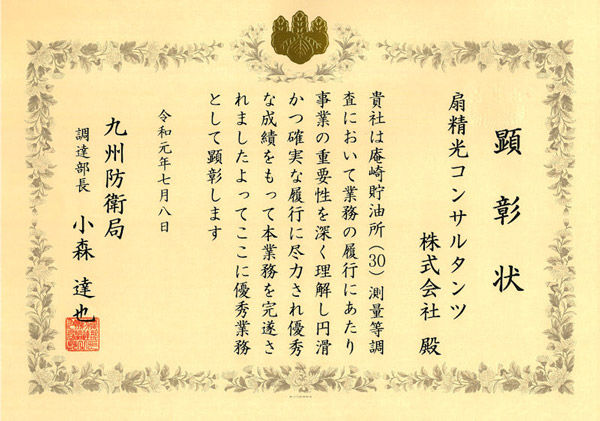 顕彰状
扇精光コンサルタンツ
株式会社 殿
貴社は庵崎貯油所(30)測量等調
査において業務の履行にあたり
事業の重要性を深く理解し円滑
かつ確実な履行に尽力され優秀
な成績をもって本業務を完遂さ
れましたよってここに優秀業務
として顕彰します
令和元年七月八日
九州防衛局
調達部長 小森 達也